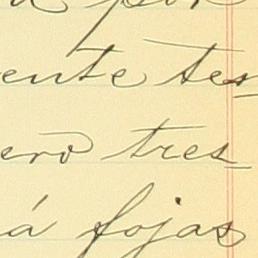 a por
ente tes-
ero tres
á fojas